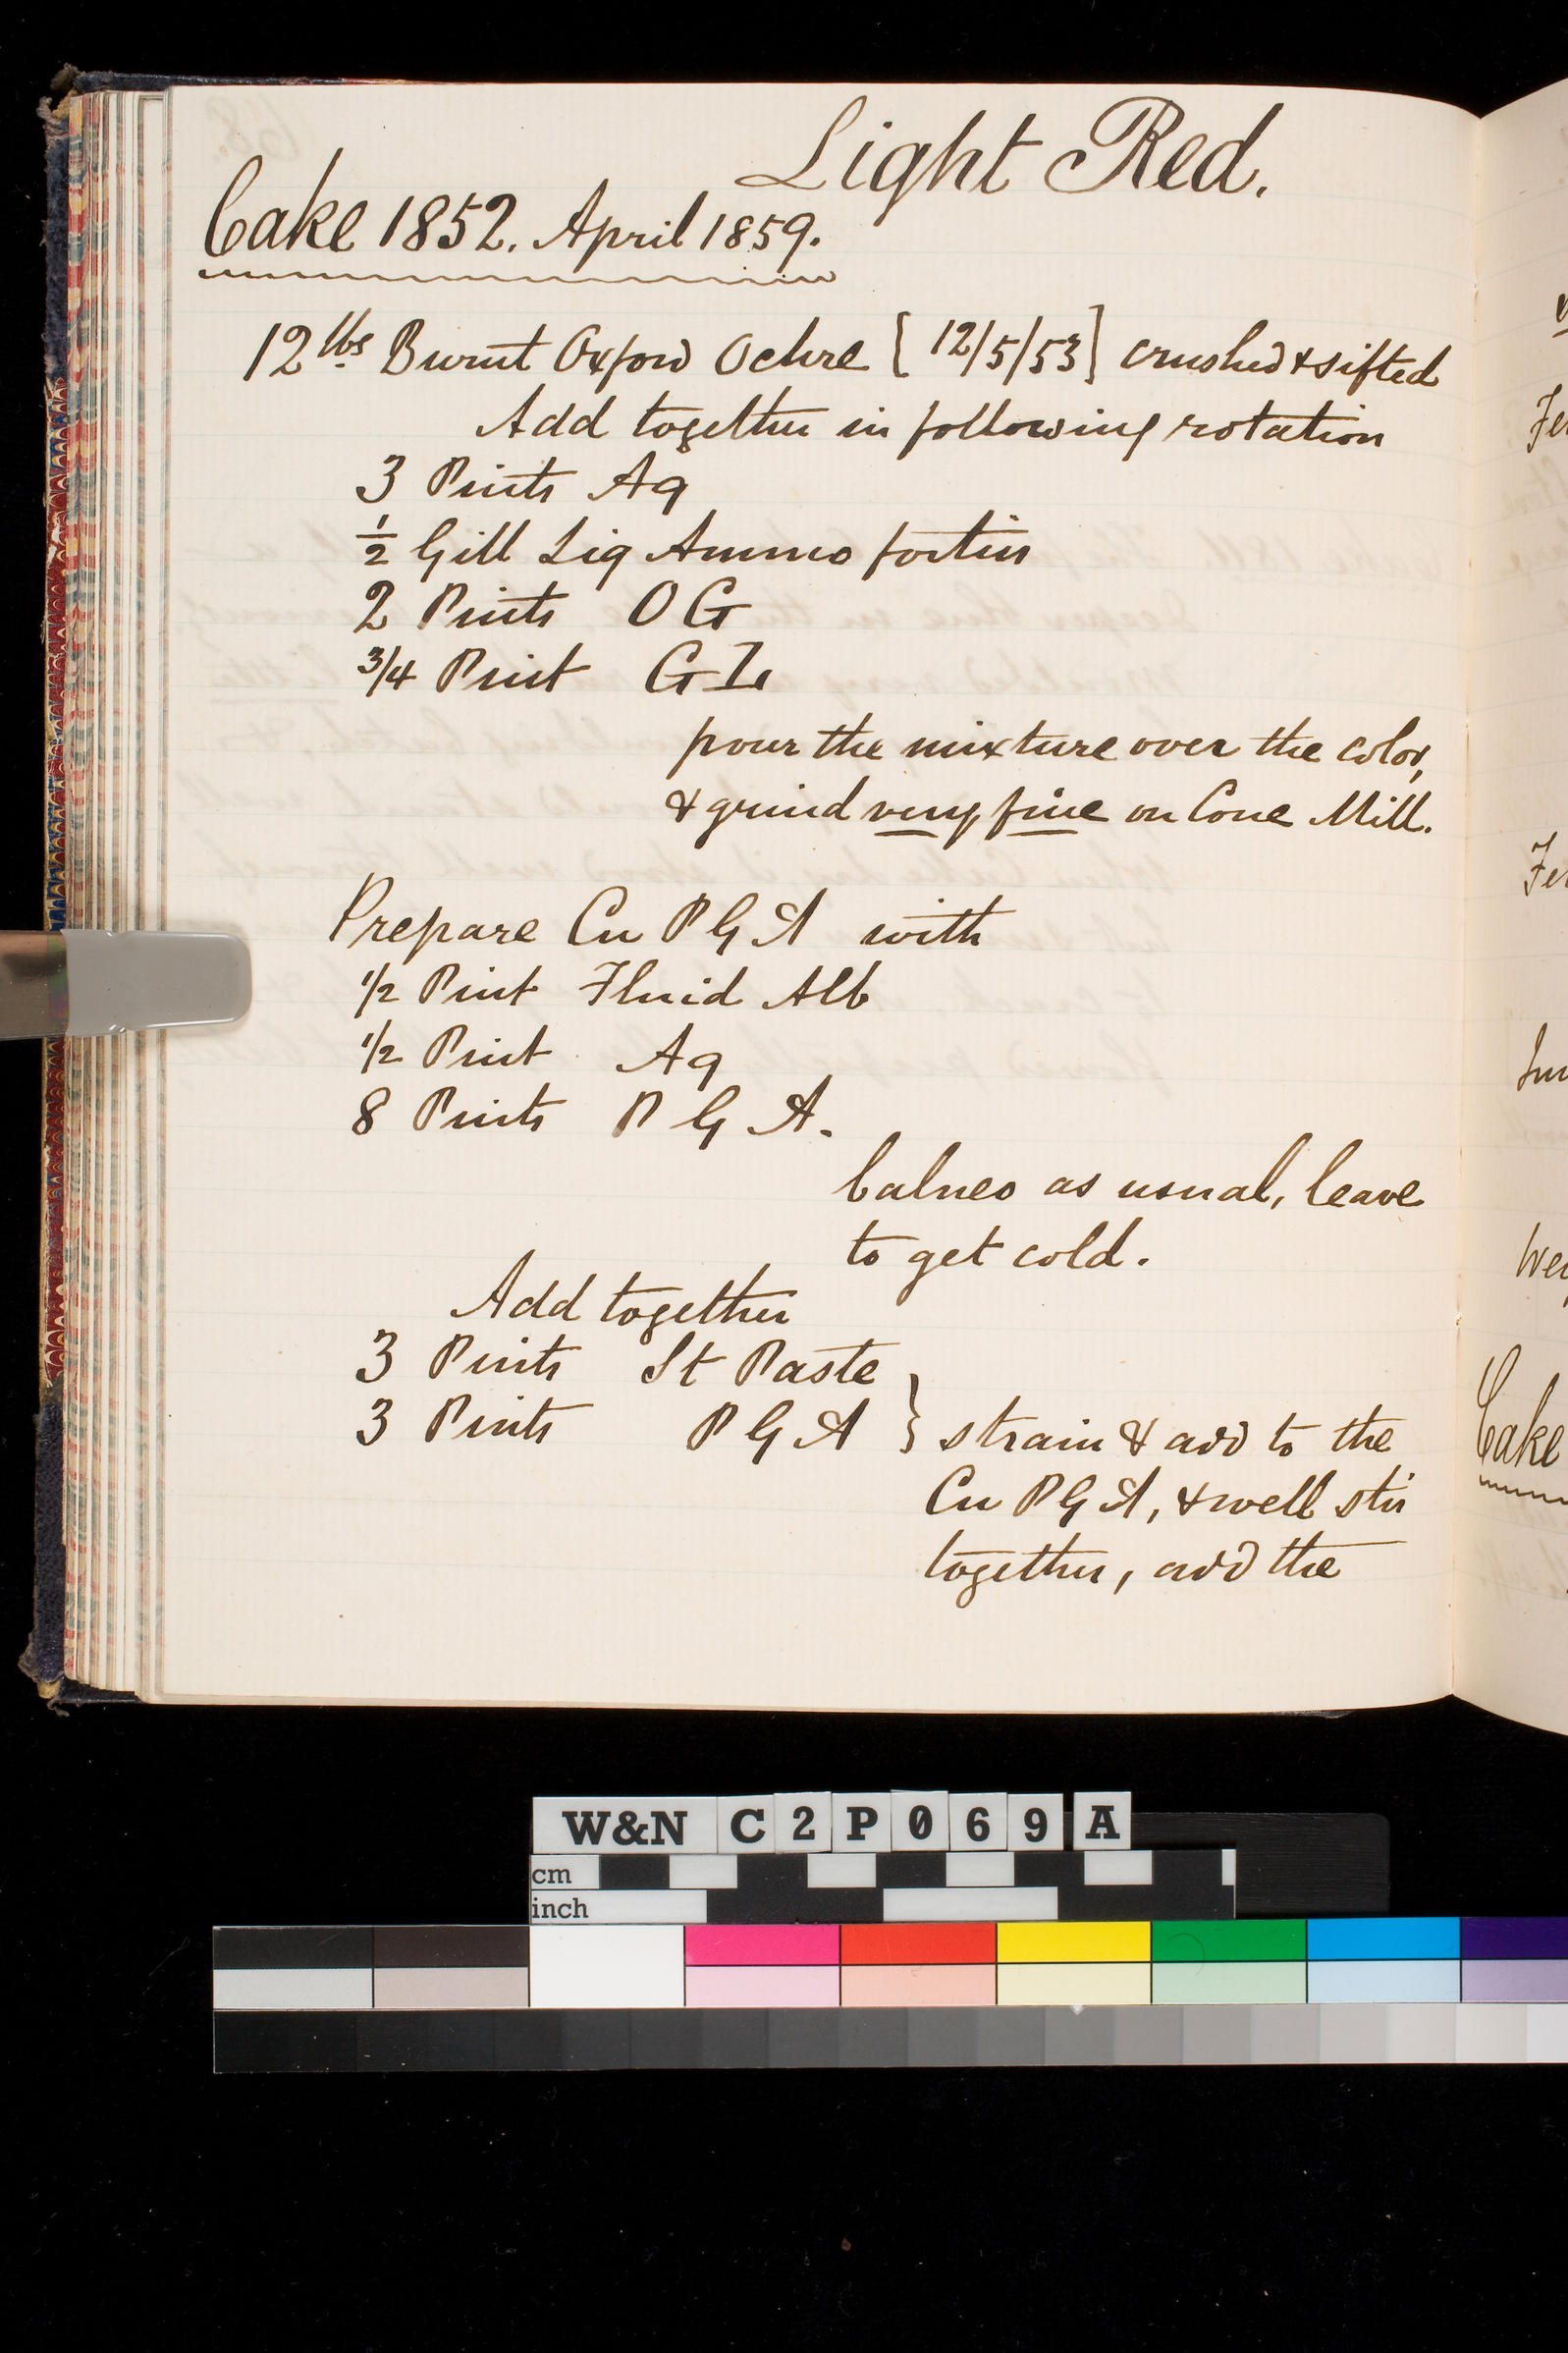 Light Red.
Cake 1852. April 1859.
12 lbs Burnt Oxford Ochre [12/5/53] crushed & sifted
Add together in following rotation
3 Pints Aq
1/2 Gill Liq Ammo fortis
2 Pints O G
3/4 Pint G L
pour the mixture over the color,
& grind very fine on Cone Mill.
Prepare Cu P G A with
1/2 Pint Fluid Alb
1/2 Pint Aq
8 Pints P G A.
balneo as usual, leave
to get cold.
Add together
3 Pints St Paste
3 Pints P G A } strain & add to the
Cu P G A, & well stir
together, add the
Cake
W&N C2P069 A
cm
inch